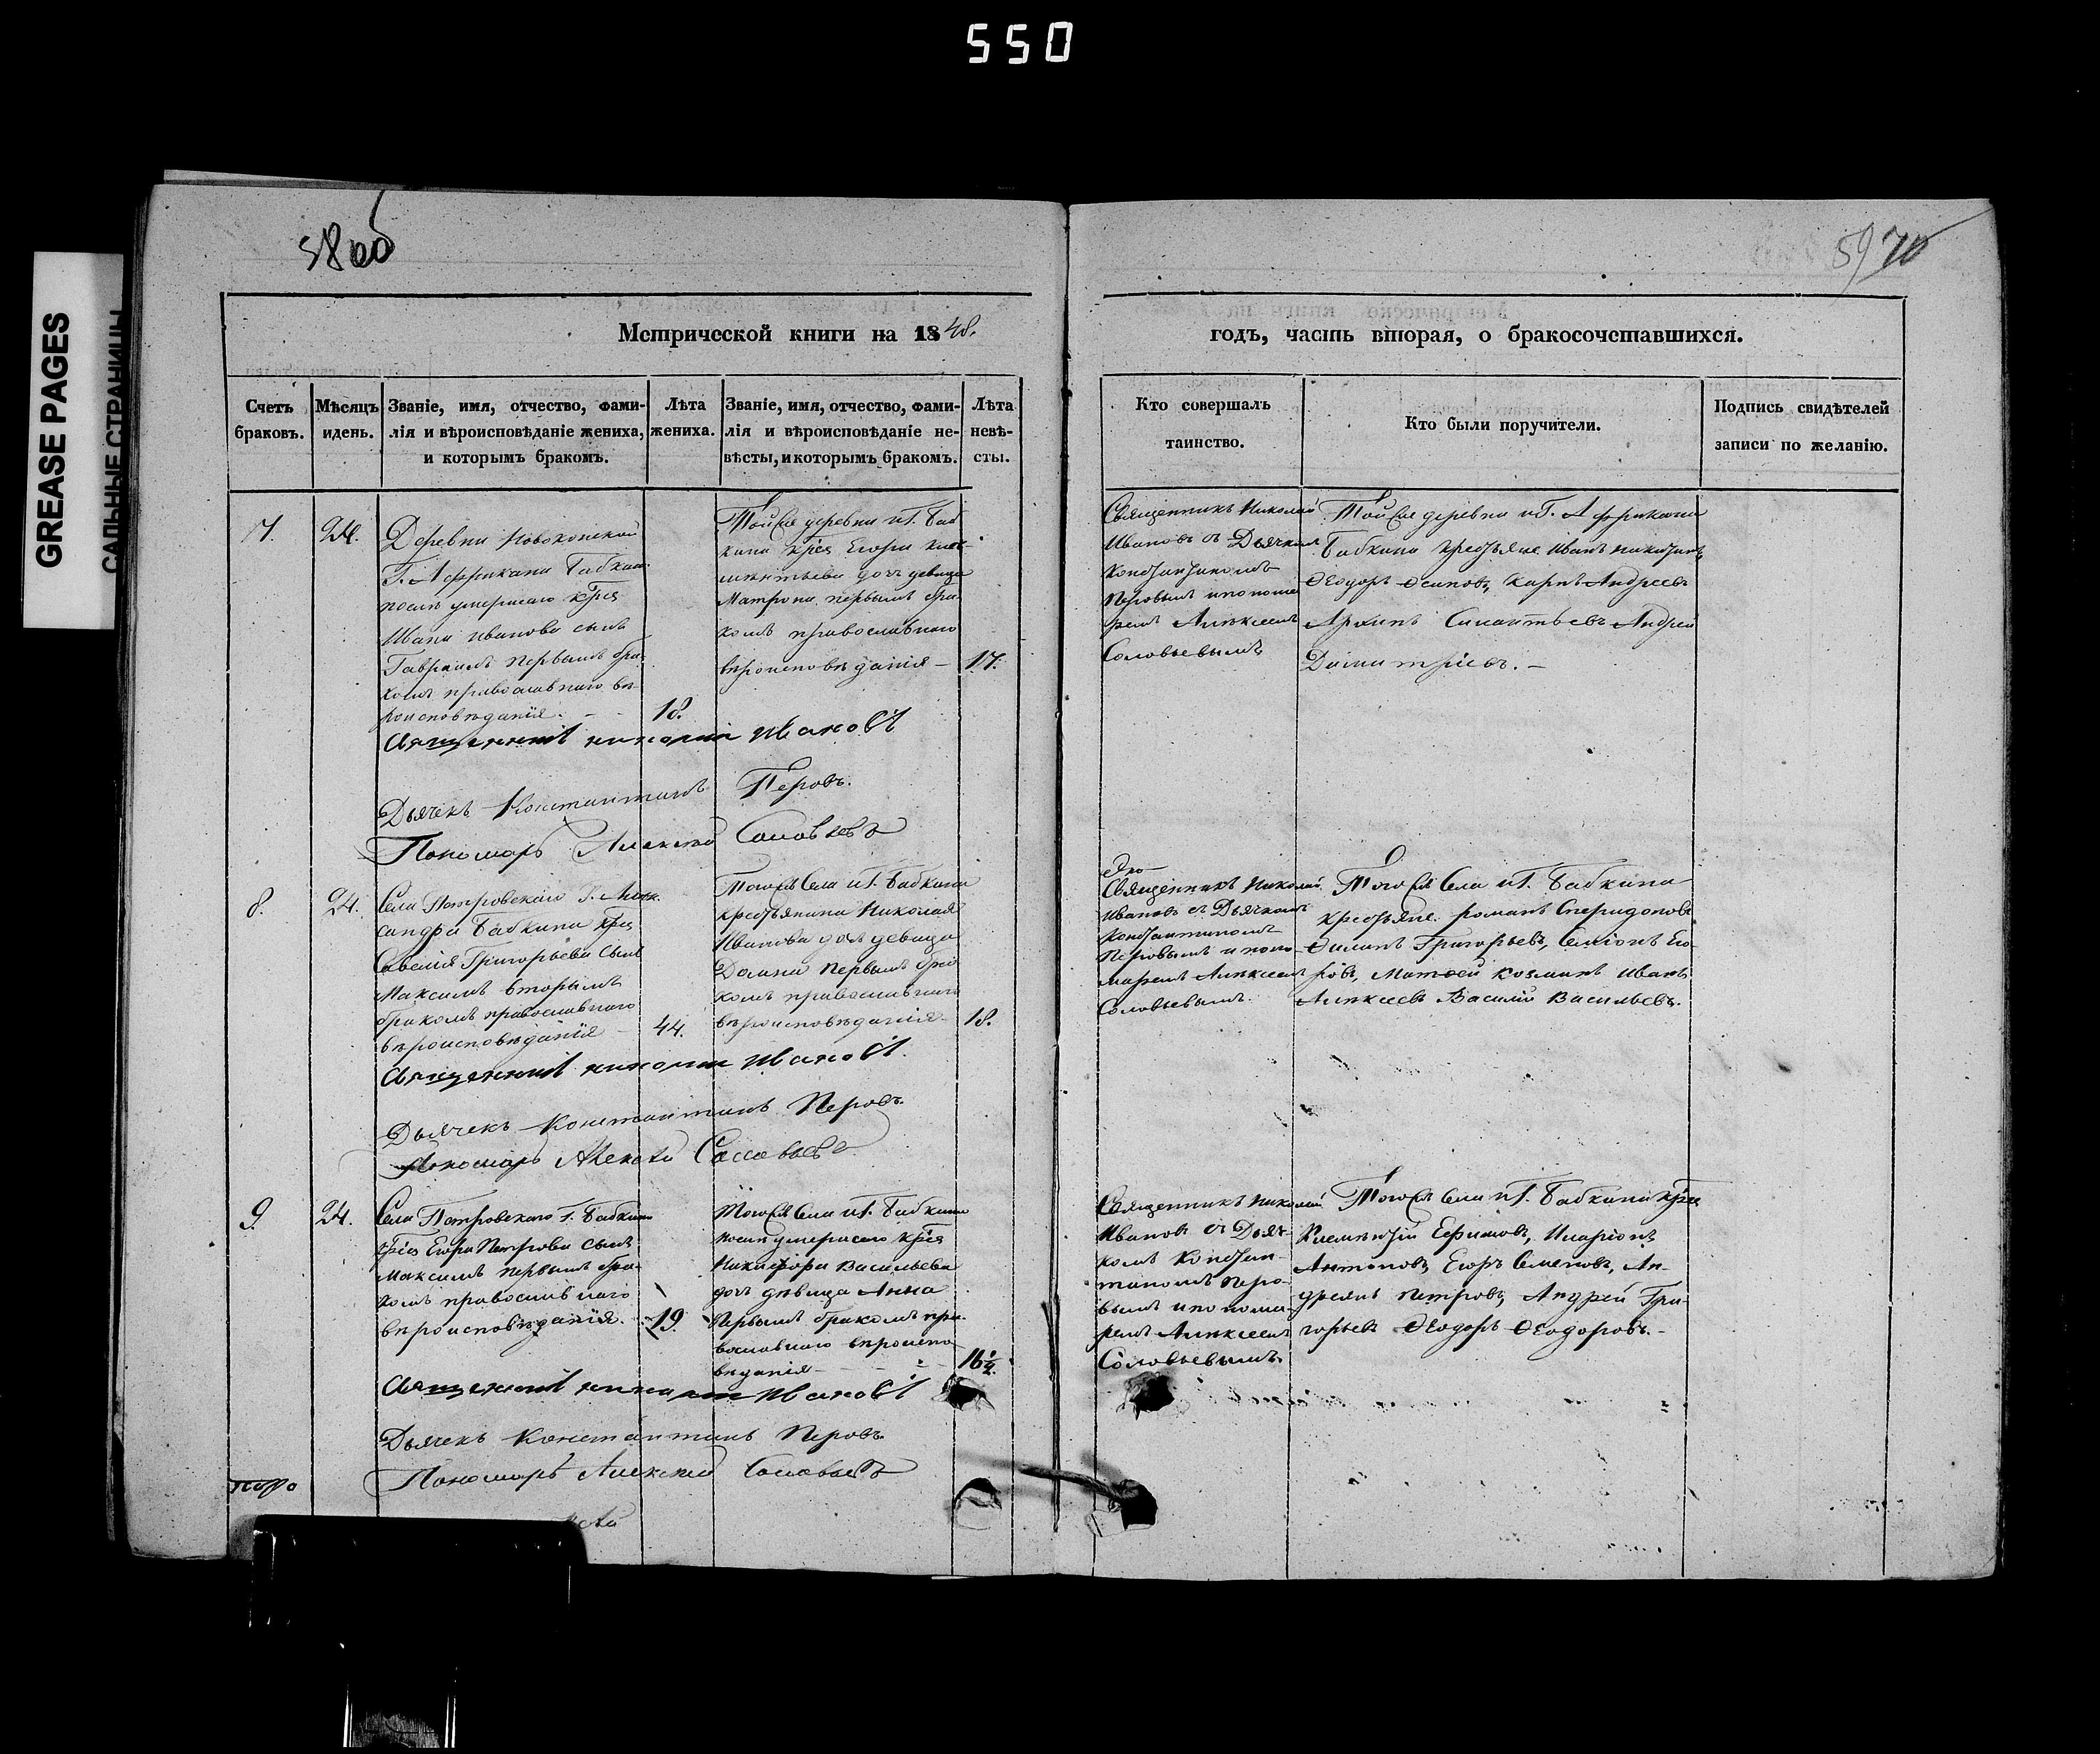 550
GREASE PAGES
САЛЬНЫЕ СТРАНИЦЫ
58об
59 70
Метрической книги на 1848.
годъ, часть вторая, о бракосочетавшихся.
Счетъ браковъ.
Мѣсяцъ идень.
Званіе, имя, отчество, фами-
лія и вѣроисповѣданіе жениха,
и которымъ бракомъ.
Лѣта жениха.
Званіе, имя, отчество, фами-
лія и вѣроисповѣданіе не-
вѣсты, и которымъ бракомъ.
Лѣта невѣ-
сты.
Кто совершалъ
таинство.
Кто были поручители.
Подпись свидѣтелей
записи по желанію.
7.
24.
Деревни
Г. Африкана Бабкина
послѣ умершаго крѣя
Ивана Иванова сынъ
Гавриилъ первымъ бра-
комъ православнаго вѣ-
роисповѣданія.
18.
Тойже деревни иГ. Баб
кина крѣя Егора
дочь девица
Матрона первымъ бра-
комъ православнаго
вѣроисповѣданія
17.
Священникъ Николай
Ивановъ съ Дьячкомъ
Константиномъ
Перовымъ и понома
ремъ Алексеемъ
Соловьевымъ
Тойже деревни иГ. Африкана
Бабкина крестьяне Иванъ Никитинъ,
Ѳеодоръ Осиповъ, Карпъ Андреевъ
Архипъ Андрей
Димитріевъ.
Священникъ Николай Ивановъ
Дьячекъ Константинъ Перовъ.
Пономарь Алексей Соловьевъ
8.
24.
Села Петровскаго Г. Алек-
сандра Бабкина крѣя
Савелія Григорьева сынъ
Максимъ вторымъ
бракомъ православнаго
вѣроисповѣданія
44.
Тогоже Села иГ. Бабкина
крестьянина Николая
Иванова дочь девица
Домна первымъ бра
комъ православнаго
вѣроисповѣданія
18.
Священникъ Николай
Ивановъ съ Дьячкомъ
Константиномъ
Перовымъ и поно-
маремъ Алексеемъ
Соловьевымъ.
Тогоже Села иГ. Бабкина
крестьяне. романъ Сперидоновъ
Филипъ Григорьевъ, Семіонъ Его-
ровъ, Матвей Козминъ Иванъ
Алексеевъ Василій Васильевъ.
Священникъ Николай Ивановъ.
Дьячекъ Константинъ Перовъ.
Пономарь Алексей Соловьевъ
9.
24.
Села Петровскаго Г. Бабкина
крѣя Егора Петрова сынъ
Максимъ первымъ бра-
комъ православнаго
вѣроисповѣданія.
19.
Тогоже Села иГ. Бабкина
послѣ умершаго крѣя
Никифора Васильева
дочь дѣвица Анна
Первымъ бракомъ пра-
вославнаго вѣроиспо
вѣданія
16½
Священникъ Николай
Ивановъ съ Дьяч-
комъ Констан-
тиномъ Перо-
вымъ и понома-
ремъ Алексеемъ
Соловьевымъ.
Тогоже Села иГ. Бабкина крѣя
Климентій Ефимовъ, Иларіонъ
Антоновъ, Егоръ Семеновъ, Ан-
дреянъ Петровъ, Андрей Гри-
горьевъ Ѳеодоръ Ѳеодоровъ.
Священникъ Николай Ивановъ
Дьячекъ Константинъ Перовъ.
Пономарь Алексей Соловьевъ